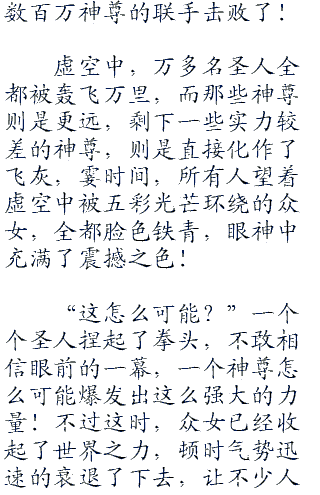 数百万神尊的联手击败了！
虚空中，万多名圣人全
都被轰飞万里，而那些神尊
则是更远，剩下一些实力较
差的神尊，则是直接化作了
飞灰，霎时间，所有人望着
虚空中被五彩光芒环绕的众
女，全都脸色铁青，眼神中
充满了震撼之色！
“这怎么可能？”一个
个圣人捏起了拳头，不敢相
信眼前的一幕，一个神尊怎
么可能爆发出这么强大的力
量！不过这时，众女已经收
起了世界之力，顿时气势迅
速的衰退了下去，让不少人